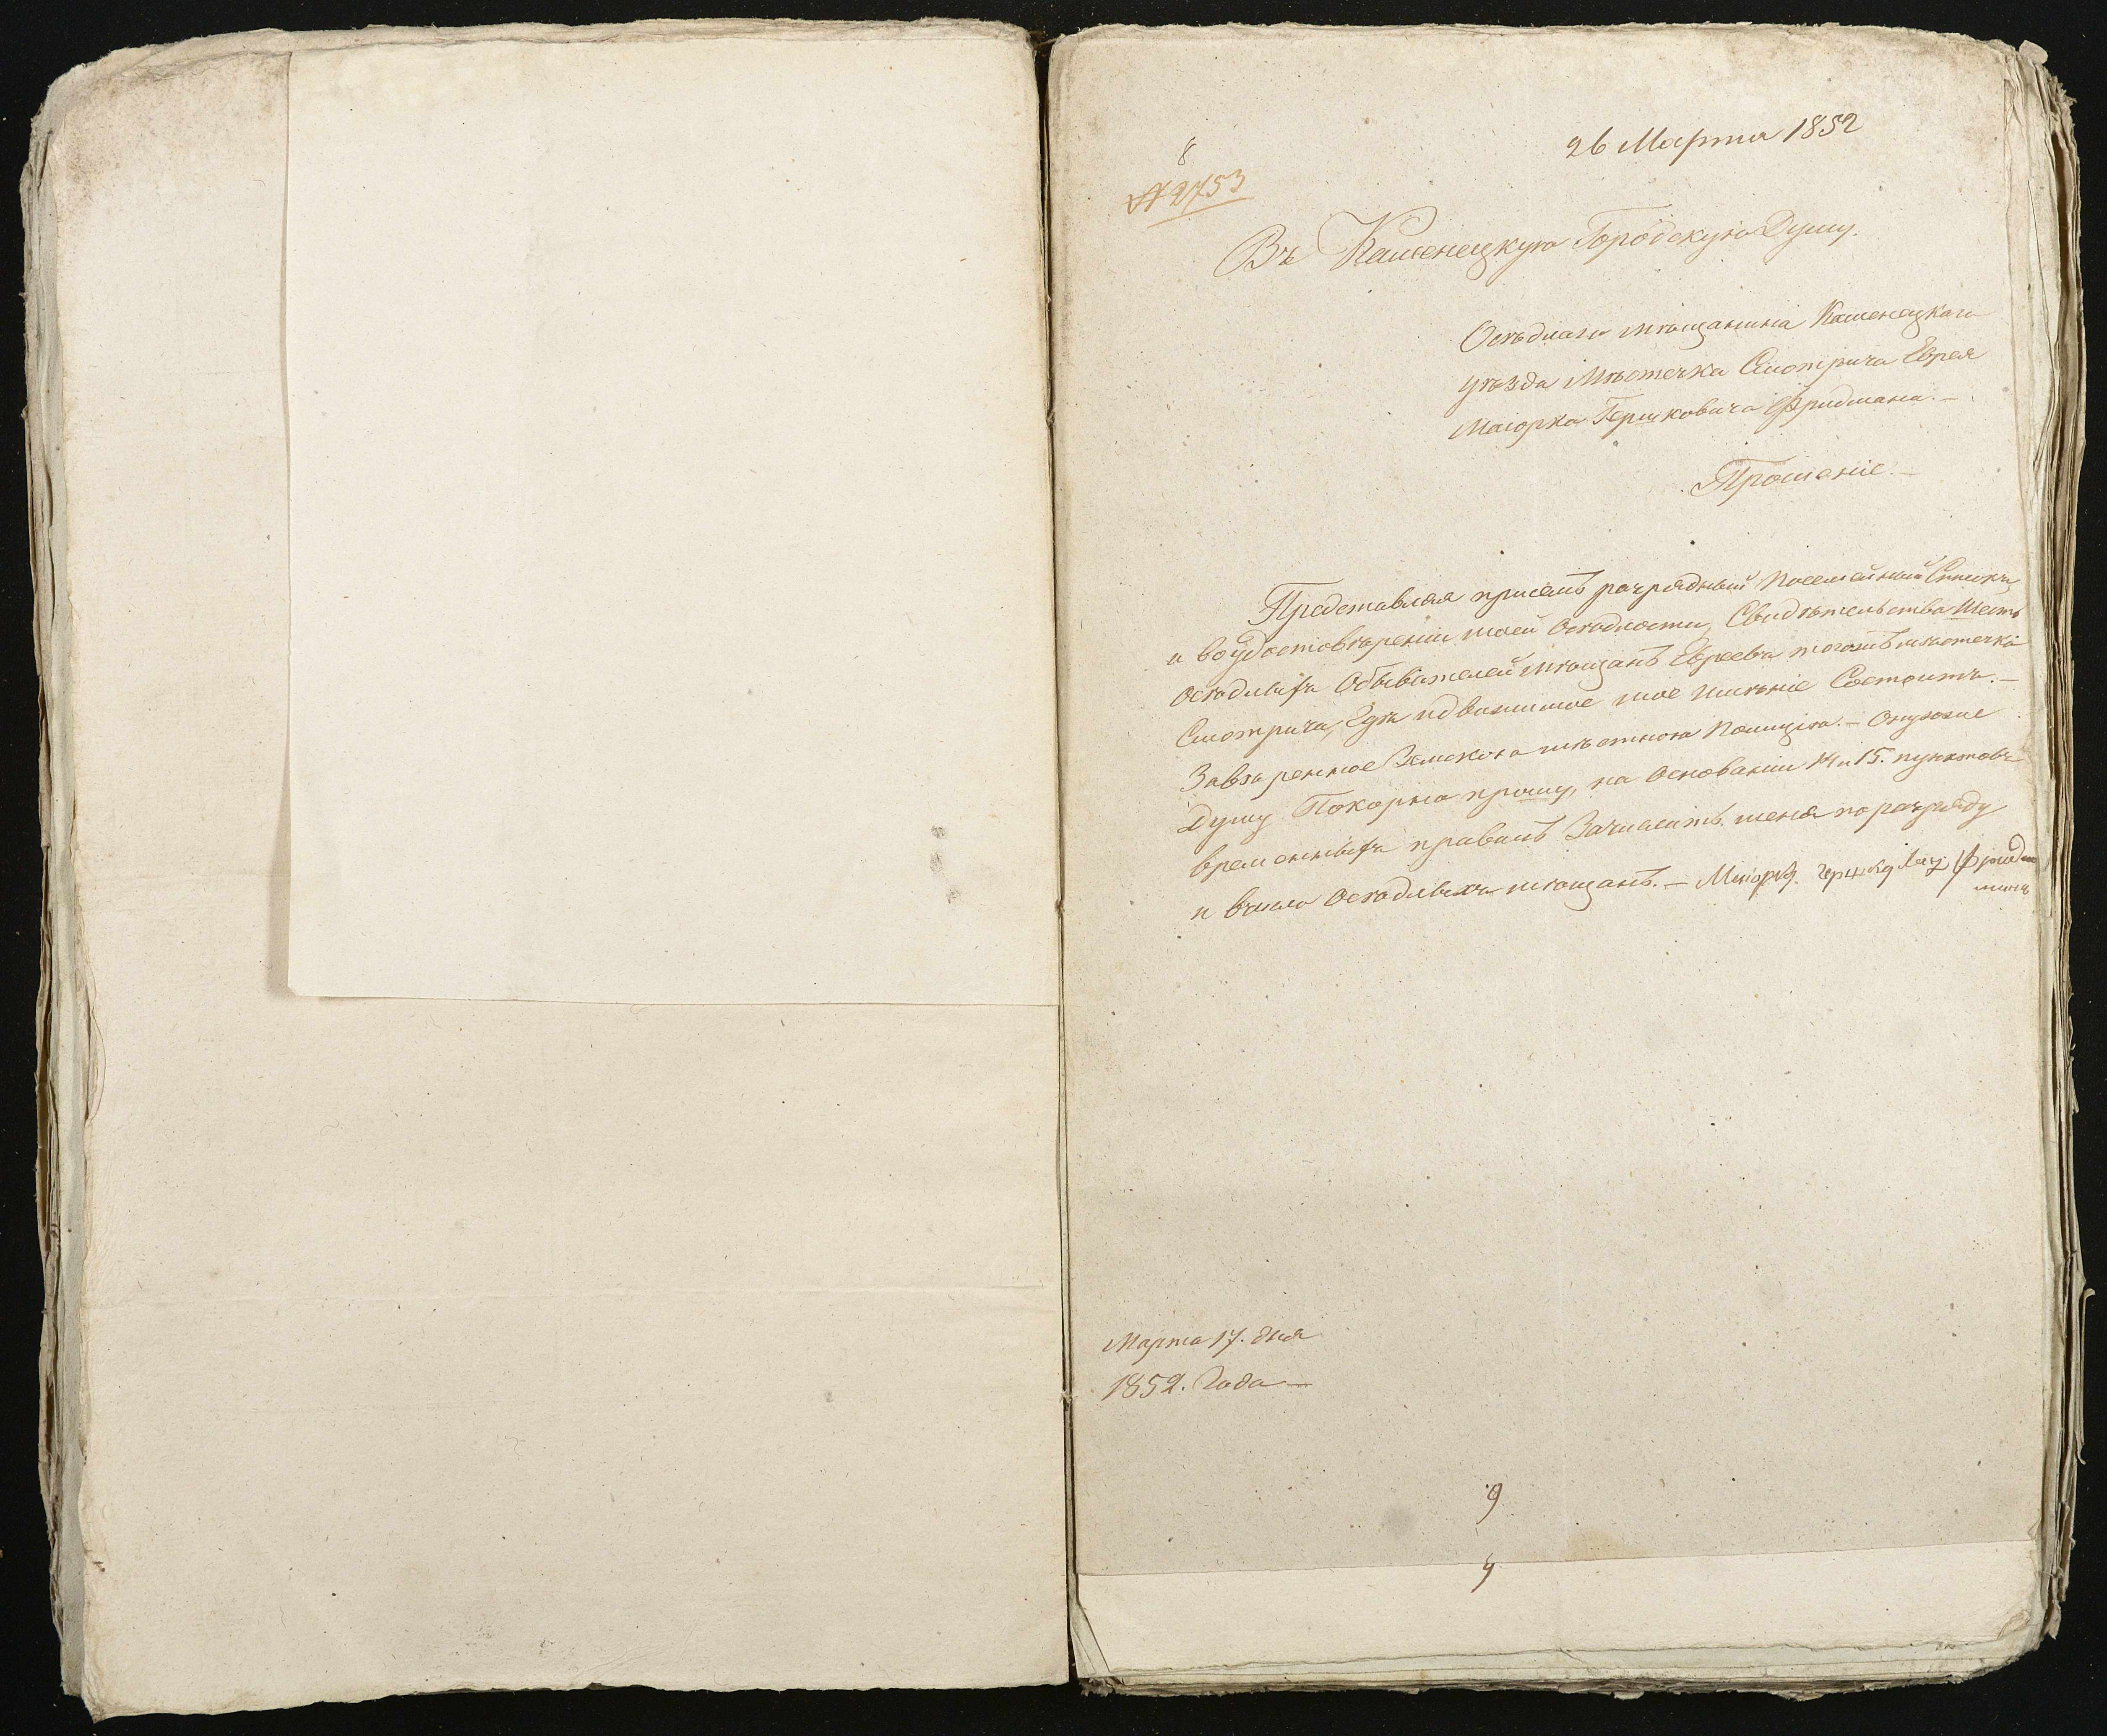 26 Марта 1852
8
№ 2753
Въ Каменецкую Городскую Думу.
Осѣдлаго мѣщанина Каменецкаго
уѣзда Мѣстечка Смотрича Еврея
Маіорка Гершковича Фридмана. —
Прошеніе. —
Представляя присемъ разрядный Посемейный Списокъ
и воудостовѣреніи моей Осѣдлости, Свидѣтельства Шесть
осѣдлыхъ Обывателей мѣщанъ Евреевъ тогожъ мѣстечка
Смотрича, Гдѣ недвижимое мое имѣніе Состоитъ. —
Завѣренное Земскою мѣстною Полиціею. — Онуюже
Думу Покорно прошу, на Основаніи 14 и 15. пунктовъ
временныхъ правилъ Зачислить меня поразряду
и вчисло Осѣдлыхъ мѣщанъ. — Фрид
манъ
Марта 17. дня
1852. Года —
9
4